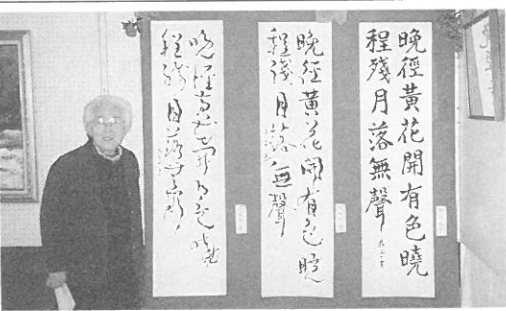 晚徑黃花開有色曉
程殘月落無聲
晚徑黃花開有色曉
程殘月落無聲
晚徑黃花開有色曉
程殘月落無聲